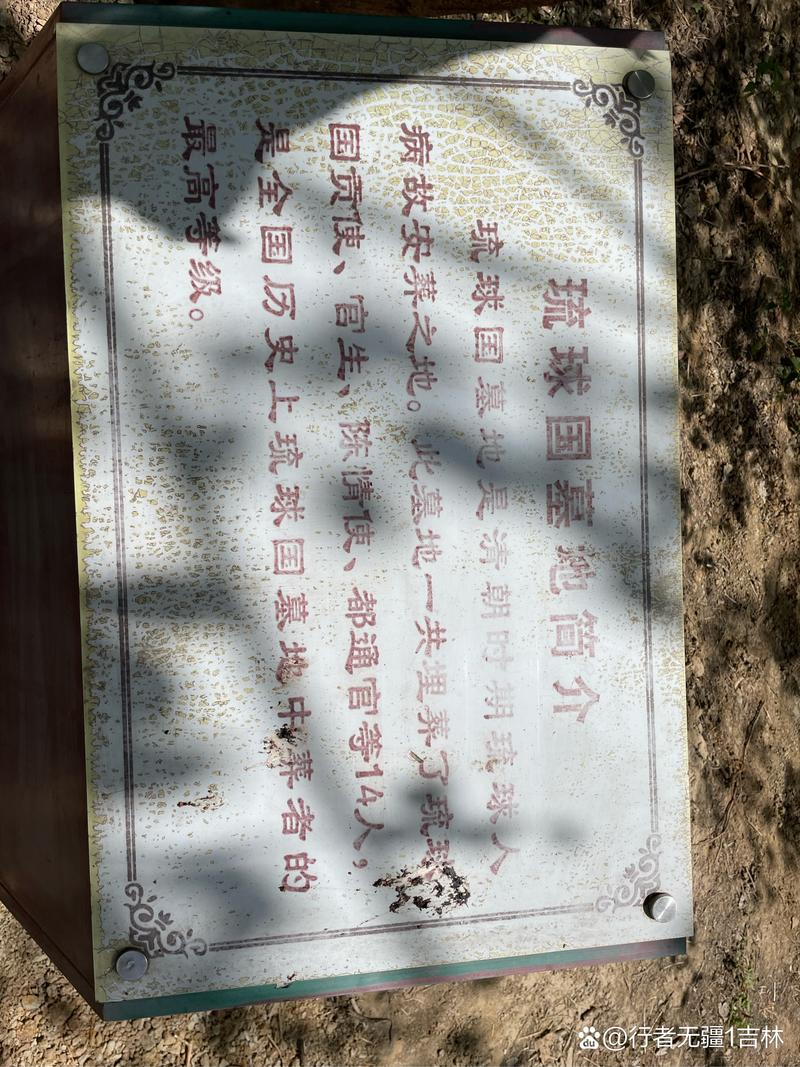 琉球国墓地简介
琉球国墓地是清朝时期琉球人
病故安葬之地。此墓地一共埋葬了琉球
国贡使、官生、陈情使、都通官等14人,
是全国历史上琉球国墓地中葬者的
最高等级。
@行者无疆1吉林